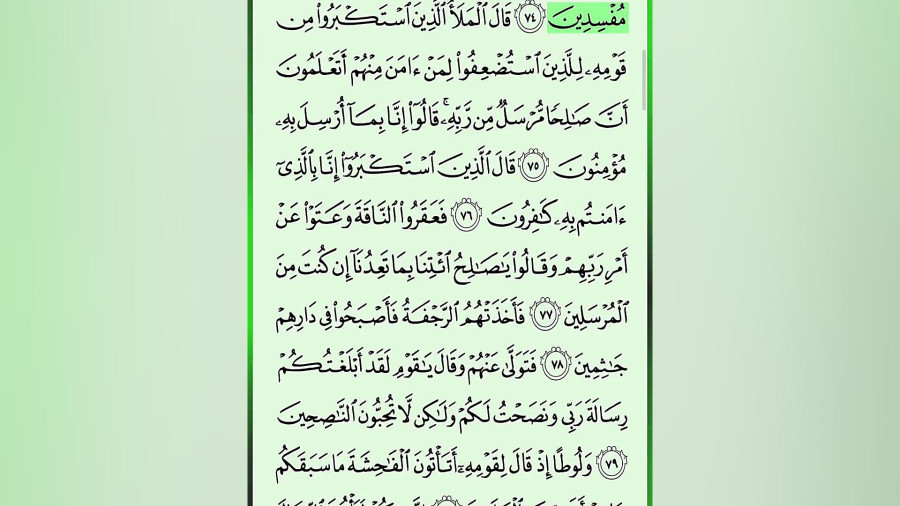 مُفۡسِدِينَ ٧٤ قَالَ ٱلۡمَلَأُ ٱلَّذِينَ ٱسۡتَكۡبَرُواْ مِن
قَوۡمِهِۦ لِلَّذِينَ ٱسۡتُضۡعِفُواْ لِمَنۡ ءَامَنَ مِنۡهُمۡ أَتَعۡلَمُونَ
أَنَّ صَٰلِحٗا مُّرۡسَلٞ مِّن رَّبِّهِۦۚ قَالُوٓاْ إِنَّا بِمَآ أُرۡسِلَ بِهِۦ
مُؤۡمِنُونَ ٧٥ قَالَ ٱلَّذِينَ ٱسۡتَكۡبَرُوٓاْ إِنَّا بِٱلَّذِيٓ
ءَامَنتُم بِهِۦ كَٰفِرُونَ ٧٦ فَعَقَرُواْ ٱلنَّاقَةَ وَعَتَوۡاْ عَنۡ
أَمۡرِ رَبِّهِمۡ وَقَالُواْ يَٰصَٰلِحُ ٱئۡتِنَا بِمَا تَعِدُنَآ إِن كُنتَ مِنَ
ٱلۡمُرۡسَلِينَ ٧٧ فَأَخَذَتۡهُمُ ٱلرَّجۡفَةُ فَأَصۡبَحُواْ فِي دَارِهِمۡ
جَٰثِمِينَ ٧٨ فَتَوَلَّىٰ عَنۡهُمۡ وَقَالَ يَٰقَوۡمِ لَقَدۡ أَبۡلَغۡتُكُمۡ
رِسَالَةَ رَبِّي وَنَصَحۡتُ لَكُمۡ وَلَٰكِن لَّا تُحِبُّونَ ٱلنَّٰصِحِينَ
٧٩ وَلُوطًا إِذۡ قَالَ لِقَوۡمِهِۦٓ أَتَأۡتُونَ ٱلۡفَٰحِشَةَ مَا سَبَقَكُم